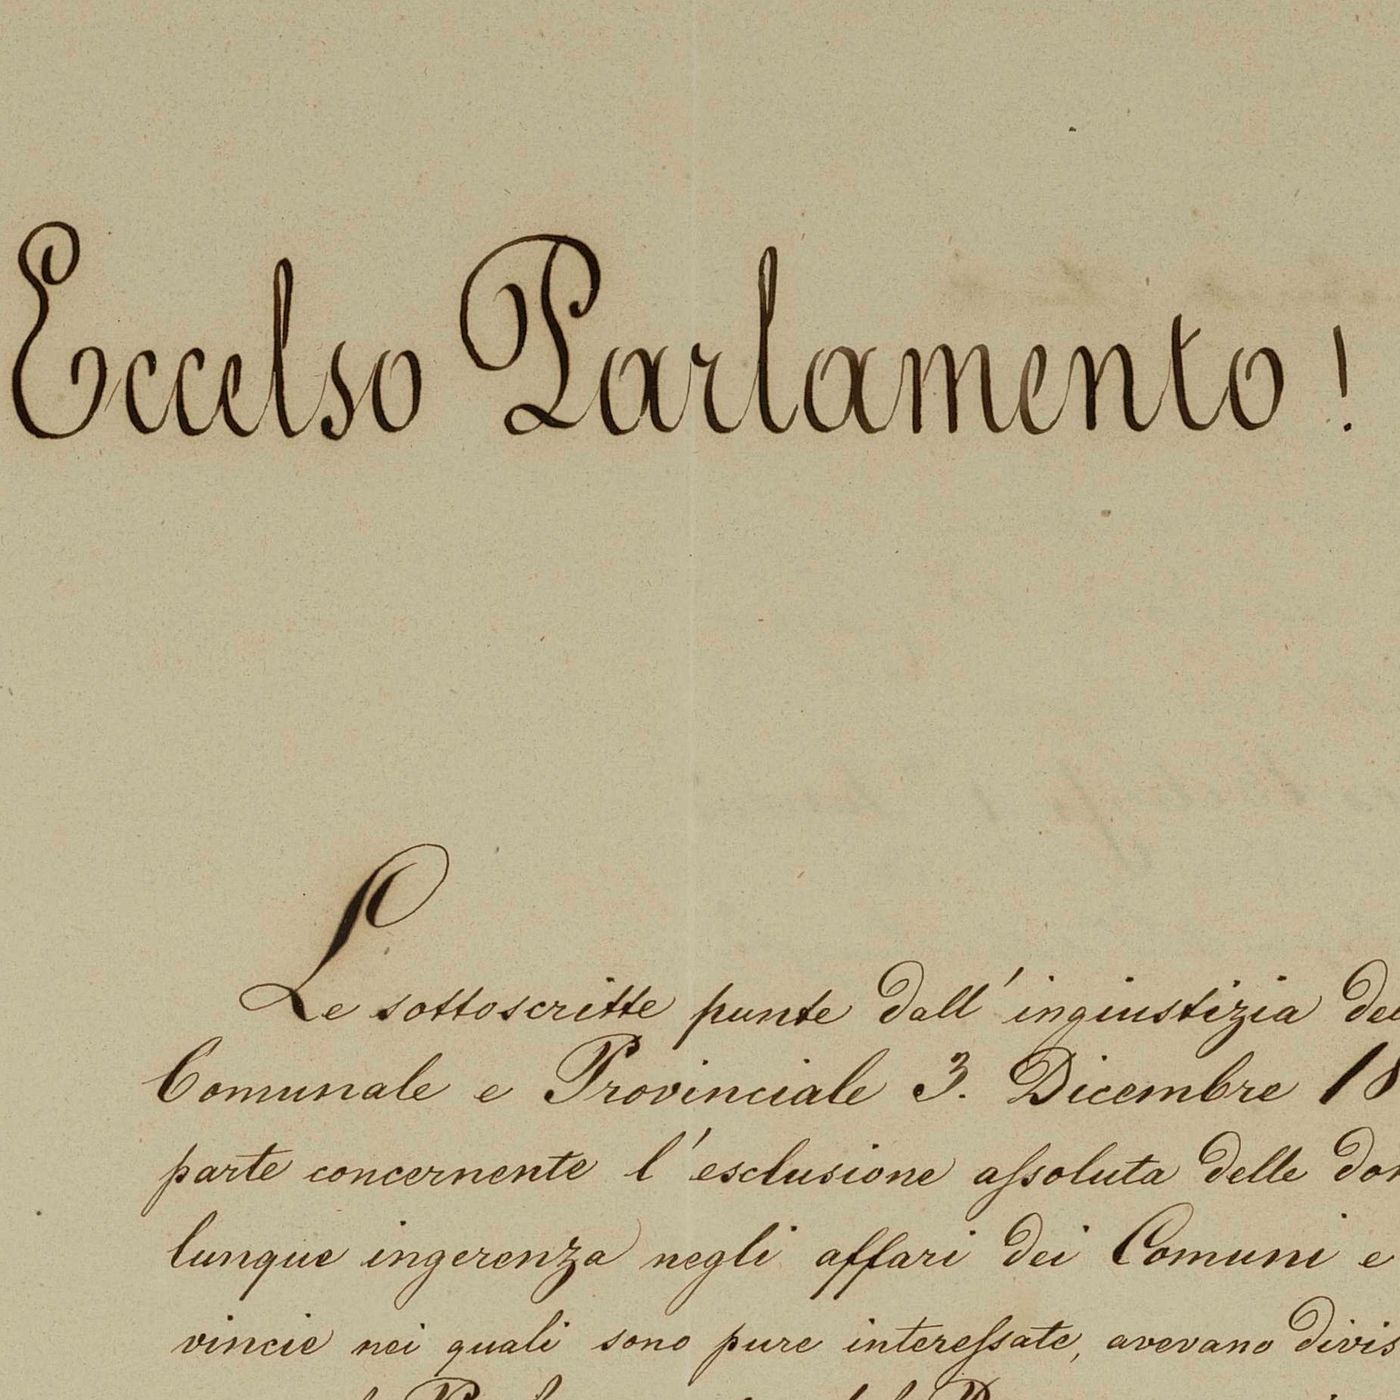 Eccelso Parlamento!
Le sottoscritte punte dall' ingiustizia
Comunale e Provinciale 3. Dicembre 18
parte concernente l'esclusione assoluta delle
lunque ingerenza negli affari dei Comuni e
vincie nei quali sono pure interessate, avevano